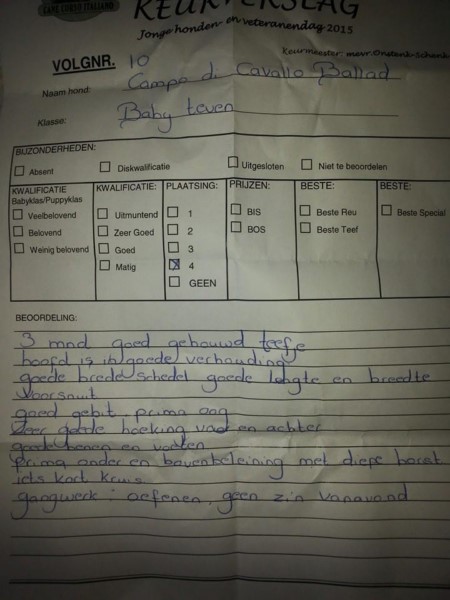 CANE CORSO ITALIANO
KEURVERSLAG
Jonge honden- en veteranendag 2015
Keurmeester: mevr. Onstenk-Schenk
VOLGNR. 10
Naam hond: Campo di Cavallo Ballad
Klasse: Baby teven
BIJZONDERHEDEN:
Absent Diskwalificatie Uitgesloten Niet te beoordelen
KWALIFICATIE
Babyklas/Puppyklas
Veelbelovend
Belovend
Weinig belovend
KWALIFICATIE:
Uitmuntend
Zeer Goed
Goed
Matig
PLAATSING:
1
2
3
4
GEEN
PRIJZEN:
BIS
BOS
BESTE:
Beste Reu
Beste Teef
BESTE:
Beste Special
BEOORDELING:
3 mnd goed gebouwd teefje
hoofd is in goede verhouding
goede brede schedel goede lengte en breedte
Voorsnuit
goed gebit. prima oog
Zeer goede hoeking voor en achter
goede benen en voeten
prima onder en bovenbelening met diepe borst
iets kort kruis
gangwerk: oefenen, geen zin vanavond